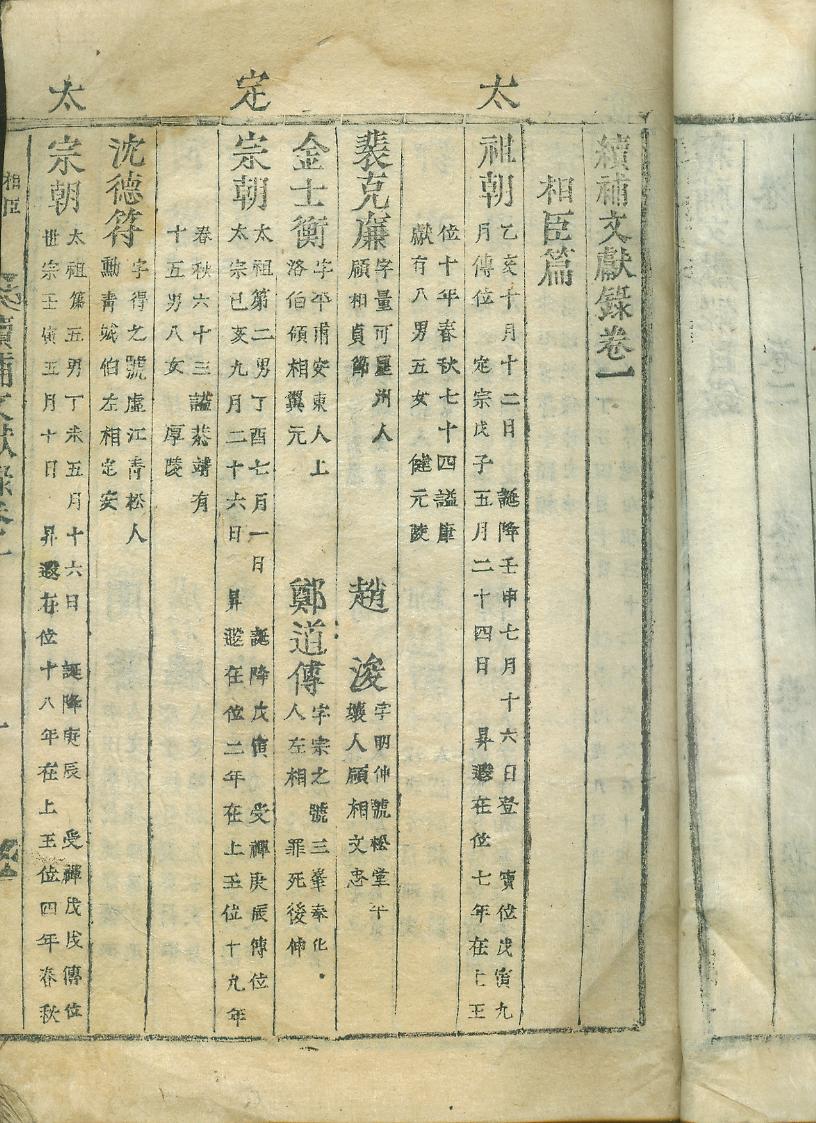 續補文獻錄卷一
相臣篇
太祖朝
乙亥十月十二日 誕降壬申七月十六日登 寶位戊寅九
月傳位 定宗戊子五月二十四日 昇遐在位七年在上王
位十年春秋七十四謚康
獻有八男五女 健元陵
裴克廉
字量可星州人
領相貞節
趙浚
字明仲號松堂平
壤人領相文忠
金士衡
字平甫安東人上
洛伯領相翼元
鄭道傳
字宗之號三峯奉化
人左相 罪死後伸
定宗朝
太祖第二男丁酉七月一日 誕降戊寅 受禪庚辰傳位
太宗己亥九月二十六日 昇遐在位二年在上王位十九年
春秋六十三謚恭靖有
十五男八女 厚陵
沈德符
字得之號虛江青松人
勳青城伯左相定安
太宗朝
太祖第五男丁未五月十六日 誕降庚辰 受禪戊戌傳位
世宗壬寅五月十日 昇遐在位十八年在上王位四年春秋
相臣
續補文獻錄卷之一